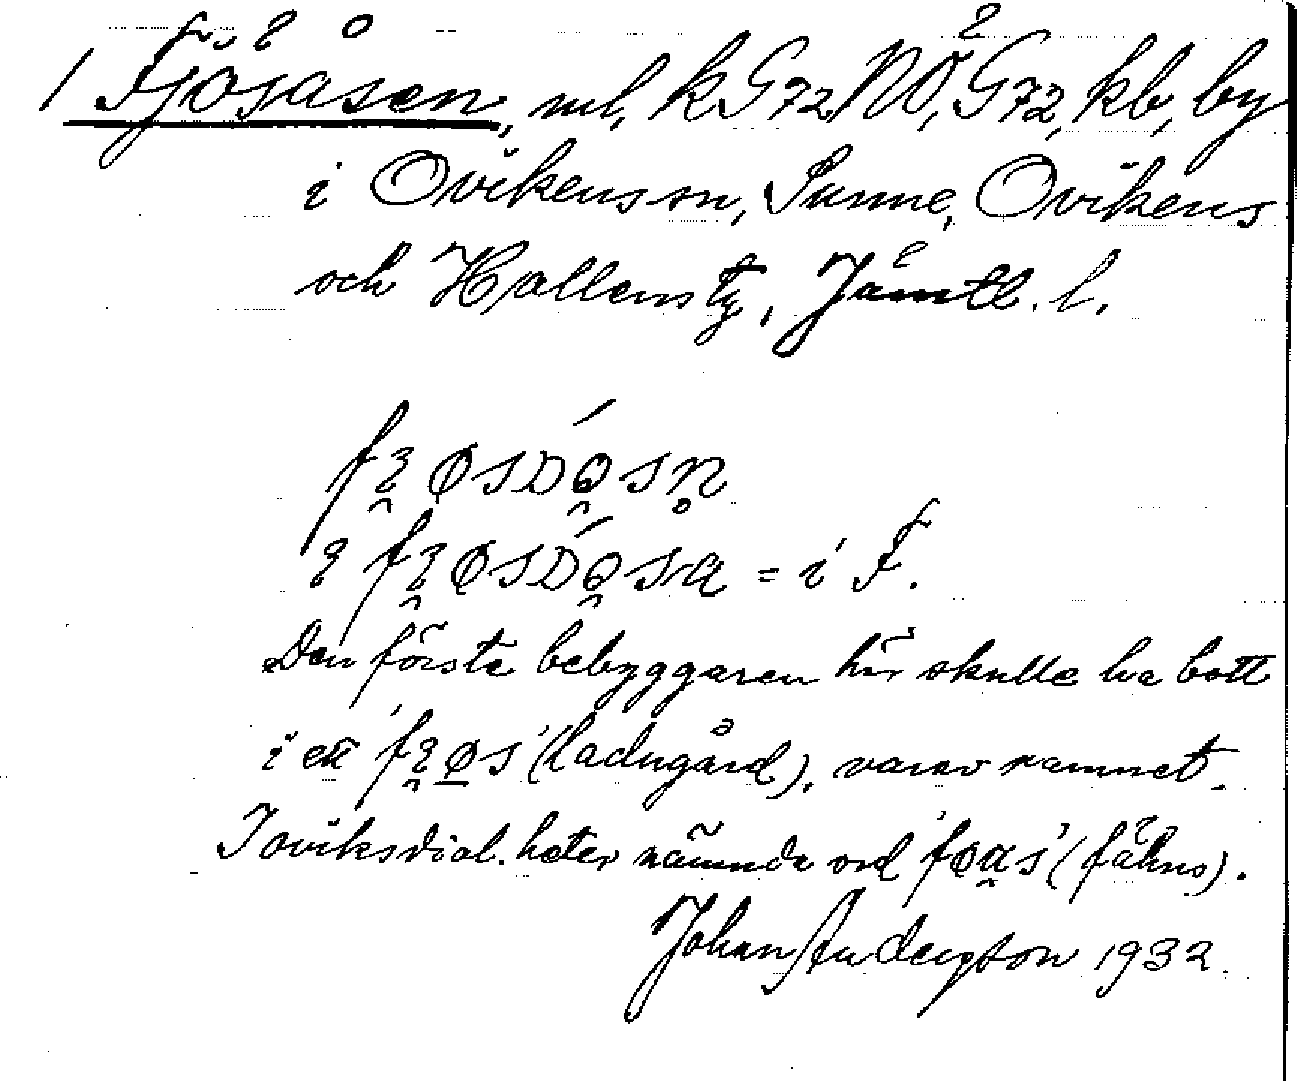 1 Fjösåsen, ml, kG72NÖ, G72, kb, by
i Ovikens sn, Sunne, Ovikens
och Hallens tg, Jämtl. l.
= i F.
Den förste bebyggaren här skulle ha bott
i ett (ladugård), varav namnet.
I oviksdial. heter nämnda ord (fähus).
Johan Anderzson 1932.